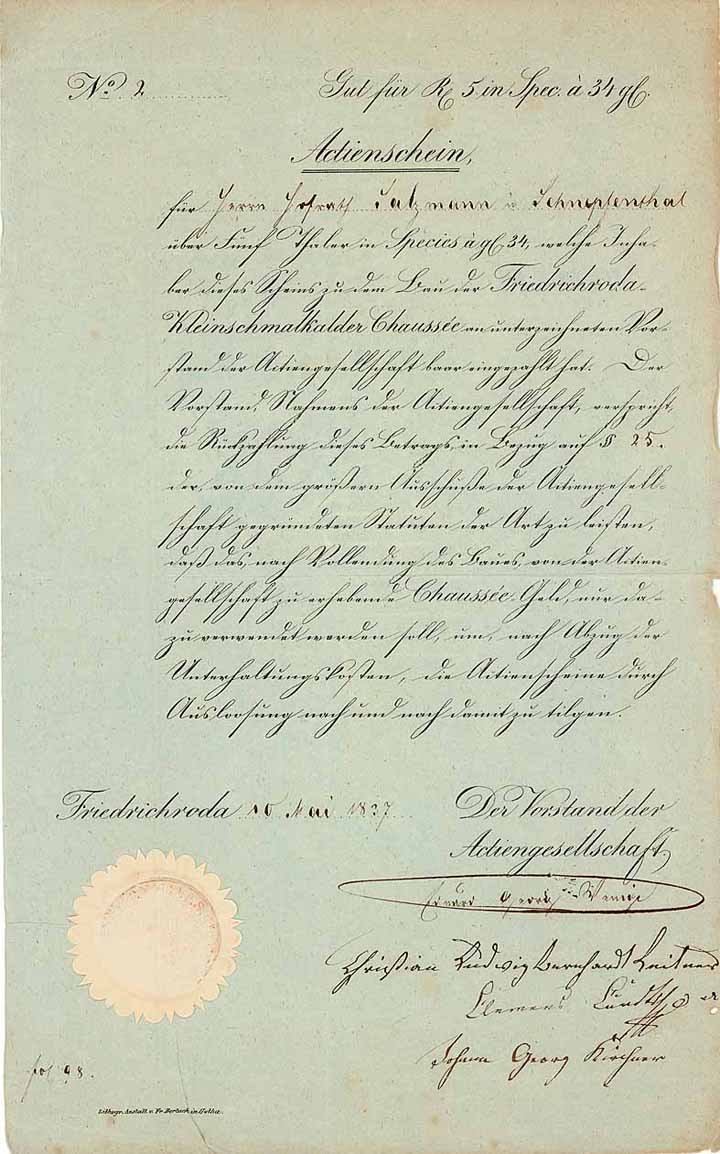 No. 2
Gut für R 5 in Spec. à 34 gl.
Actienschein,
für Herrn Hofrath Salzmann in Schnepfenthal
über Fünf Thaler in Species à gl. 34, welche Inha-
ber dieses Scheins zu dem Bau der Friedrichroda-
Kleinschmalkalder Chaussée an unterzeichneten Vor-
stand der Actiengesellschaft baar eingezahlt hat. Der
Vorstand, Nahmens der Actiengesellschaft, verspricht,
die Rückzahlung dieses Betrags, in Bezug auf § 25.
der, von dem größern Ausschuße der Actiengesell-
schaft gegründeten Statuten der Art zu leisten,
daß das, nach Vollendung des Baues, von der Actien-
gesellschaft zu erhebende Chaussée-Geld, nur da-
zu verwendet werden soll, um, nach Abzug der
Unterhaltungskosten, die Actienscheine durch
Ausloosung nach und nach damit zu tilgen.
Friedrichroda 10 Mai 1837
Der Vorstand der
Actiengesellschaft,
Eduard Georg
Christian Ludwig Bernhardt
Clemens
Johann Georg Kirchner
fol 98.
Lithogr. Anstalt v. Fr. Bertuch in Gotha.